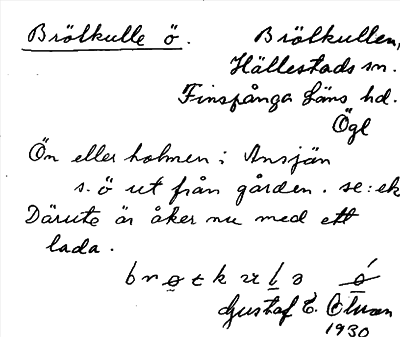 Brötkulle ö.
Brötkullen,
Hällestads sn.
Finspånga läns hd.
Ögl
Ön eller holmen i Ansjön
s. ö ut från gården. se: ek
Därute är åker nu med ett
lada.
Gustaf E.
1930